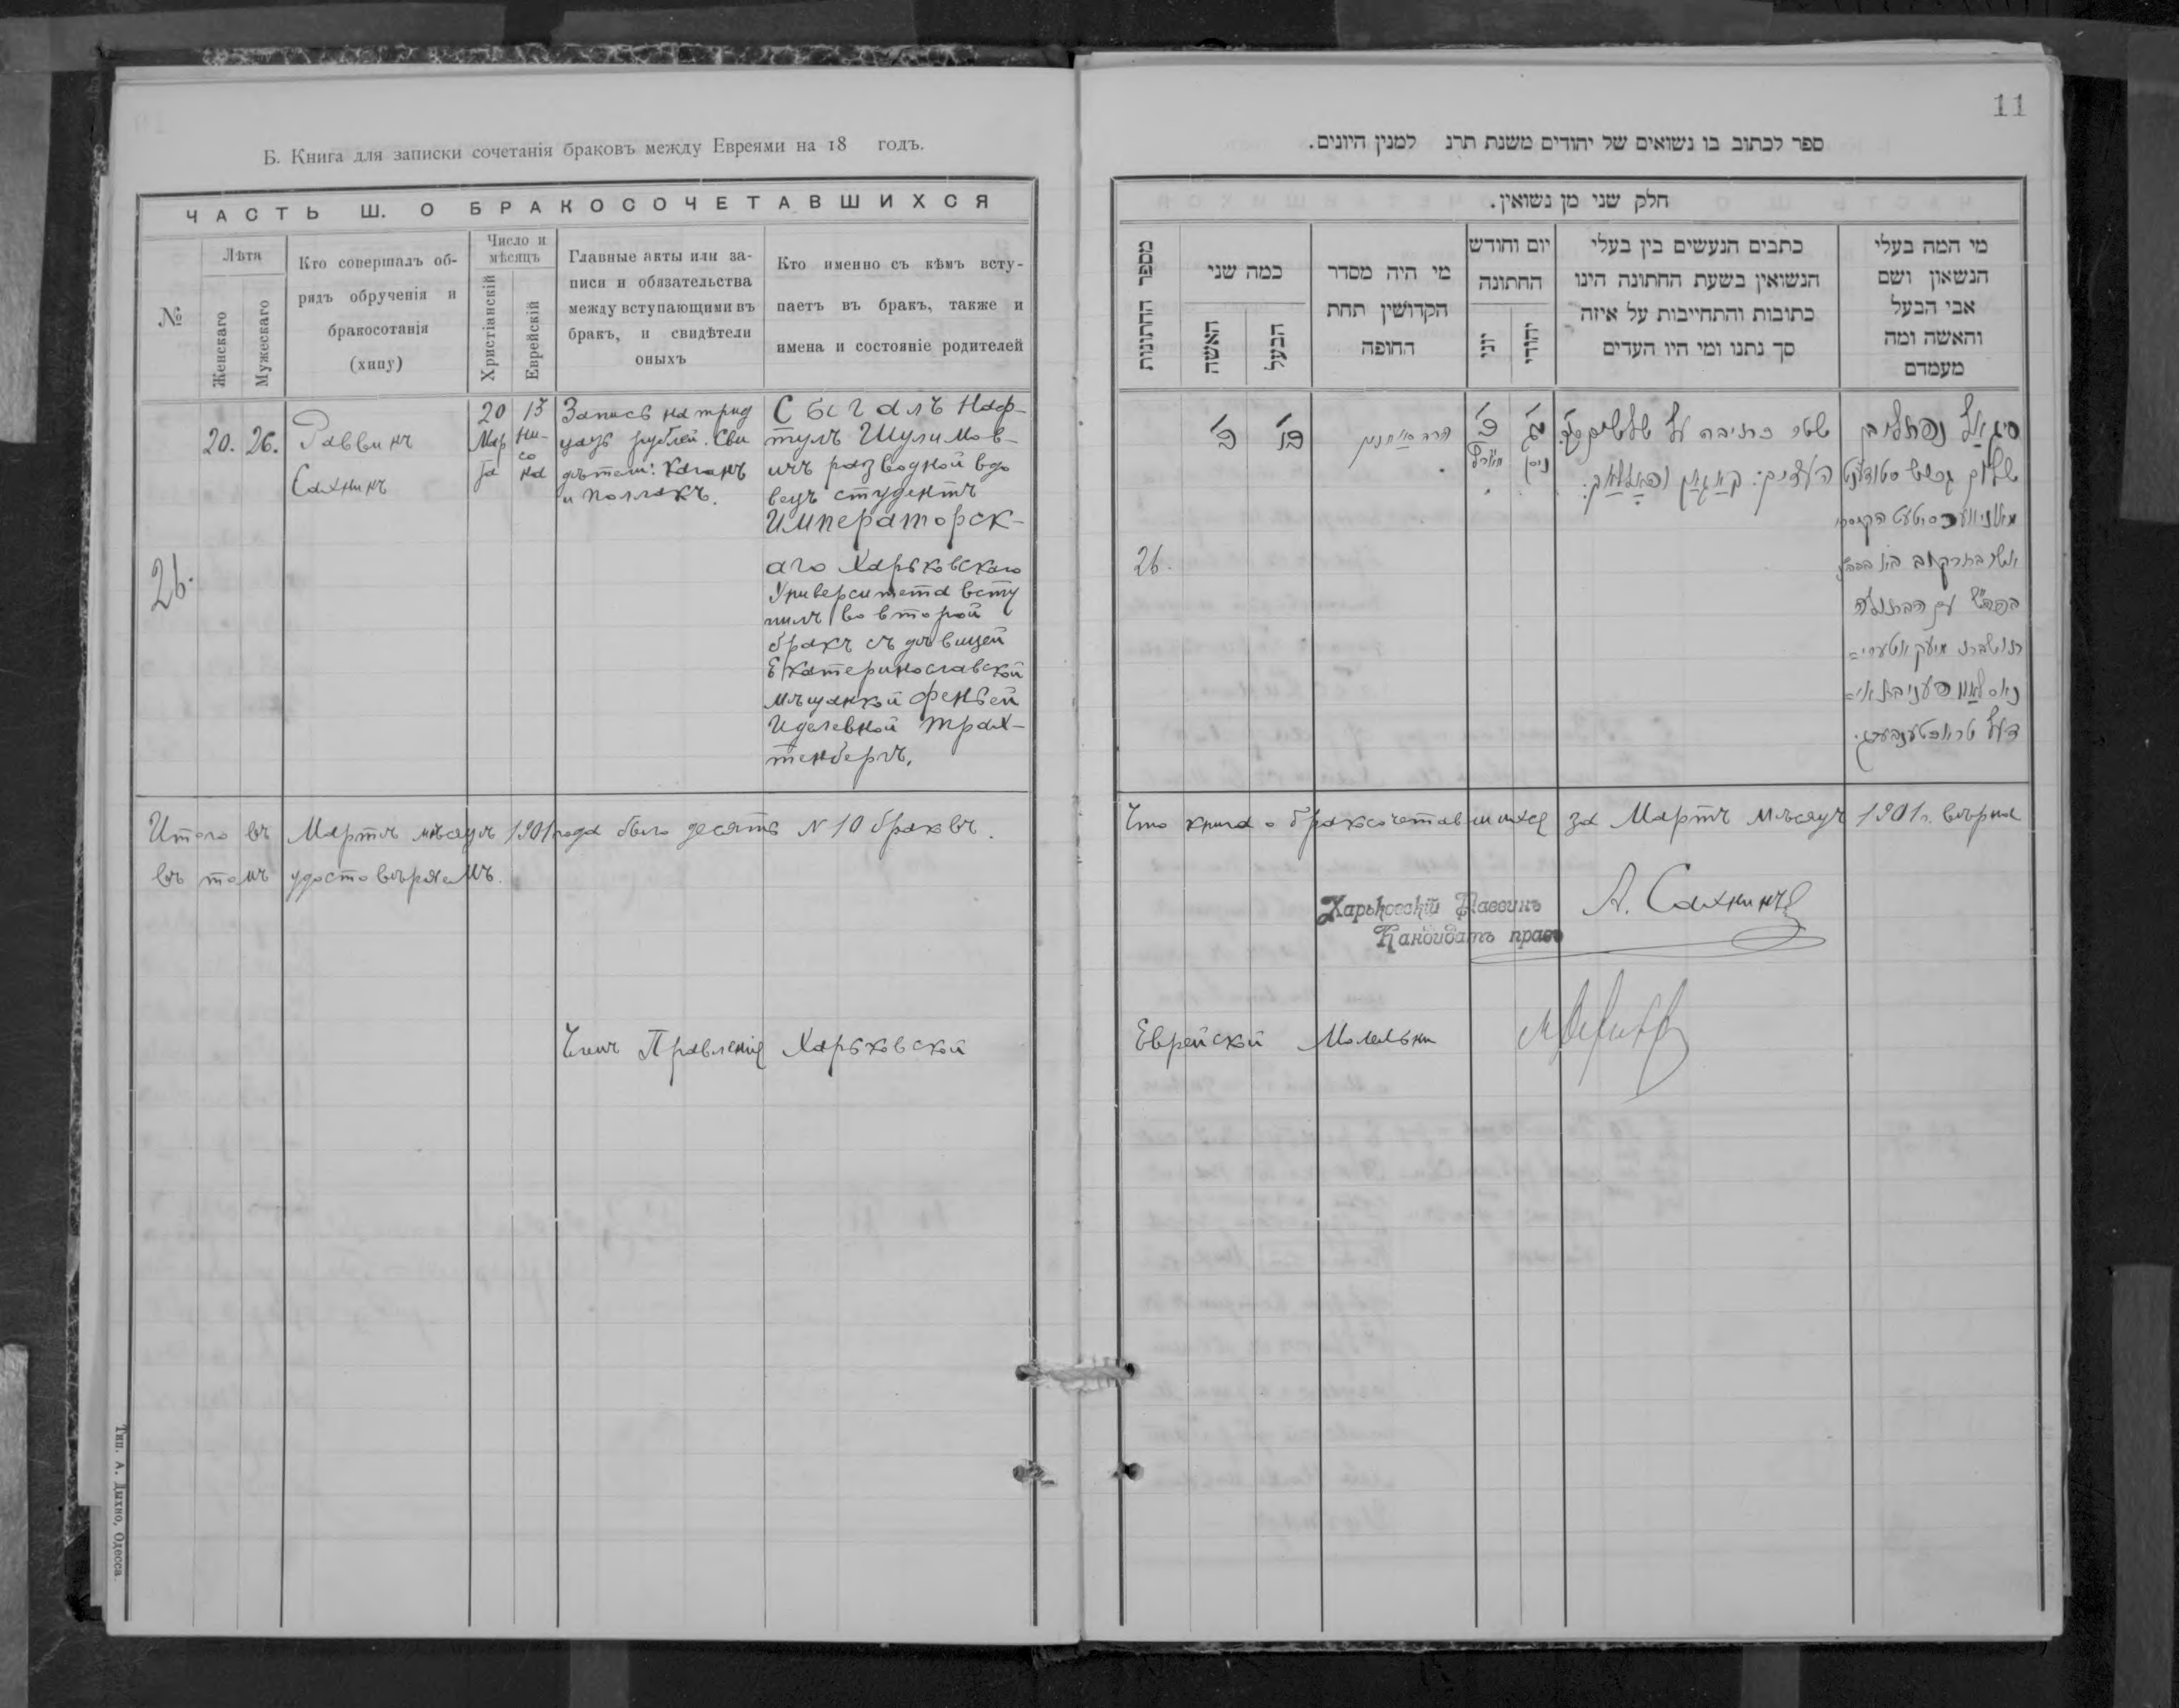 11
Б. Книга для записки сочетанія браковъ между Евреями на 18 годъ.
ЧАСТЬ Ш. О БРАКОСОЧЕТАВШИХСЯ
№
Лѣта
Женскаго
Мужескаго
Кто совершалъ об-
рядъ обрученія и
бракосотанія
(хипу)
Число и
мѣсяцъ
Христіанскій
Еврейскій
Главные акты или за-
писи и обязательства
между вступающими въ
бракъ, и свидѣтели
оныхъ
Кто именно съ кѣмъ всту-
паетъ въ бракъ, также и
имена и состояніе родителей
26.
20.
26.
Раввинъ
Сахнинъ
20
Мар
та
13
Ни-
со
на
Запись на трид
цать рублей. Сви
дѣтели: Каганъ
и Поллакъ.
Сыгалъ Наф-
тулъ Шулимов-
ичъ разводной вдо
вецъ студентъ
Императорск-
аго Харьковскаго
Университета всту
пилъ во второй
бракъ съ дѣвицей
Екатеринославской
мѣщанкой Феньей
Иделевной Трах-
тенбергъ.
Итого въ Мартѣ мѣсяцѣ 1901 года было десять № 10 браковъ.
въ томъ удостовѣряемъ.
Членъ Правленія Харьковской
Тип. А. Дыхно, Одесса.
ספר לכתוב בו נשואים של יהודים משנת תרנ למנין היונים.
חלק שני מן נשואין.
מספר החתונות
כמה שני
האשה
הבעל
מי היה מסדר
הקדושין תחת
החופה
יום וחודש
החתונה
יוני
יהודי
כתבים הנעשים בין בעלי
הנשואין בשעת החתונה הינו
כתובות והתחייבות על איזה
סך נתנו ומי היו העדים
מי המה בעלי
הנשאון ושם
אבי הבעל
והאשה ומה
מעמדם
26.
כ
כו
כ
מארט
יג
ניסן
שטר כתובה על שלשים
העדים: קאגאן ופאללאק:
סיגאל נפתלי בן
שלום גרוש סטודענט
Что книга о бракосочетавшихся за Мартъ мѣсяцъ 1901 г. вѣрна
Харьковскій Раввинъ
Кандидатъ правъ
А. Сахнинъ
Еврейской Молельни